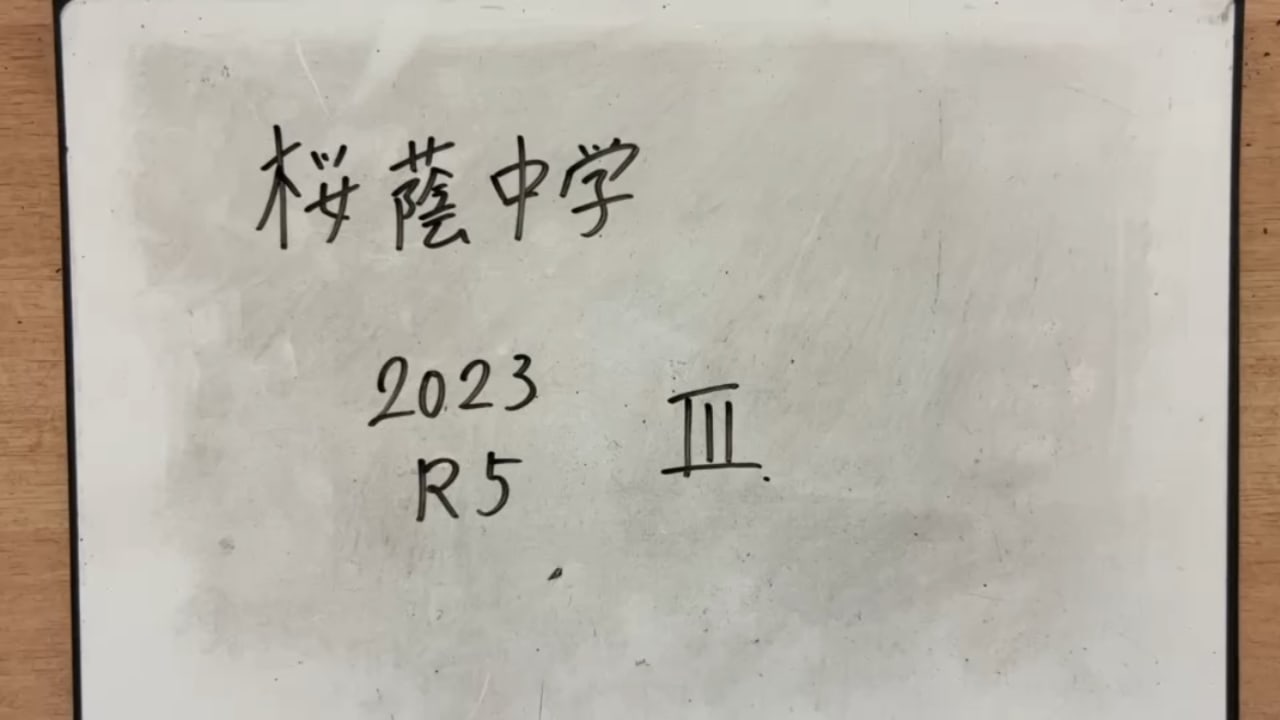 桜蔭中学
2023
R5
III.